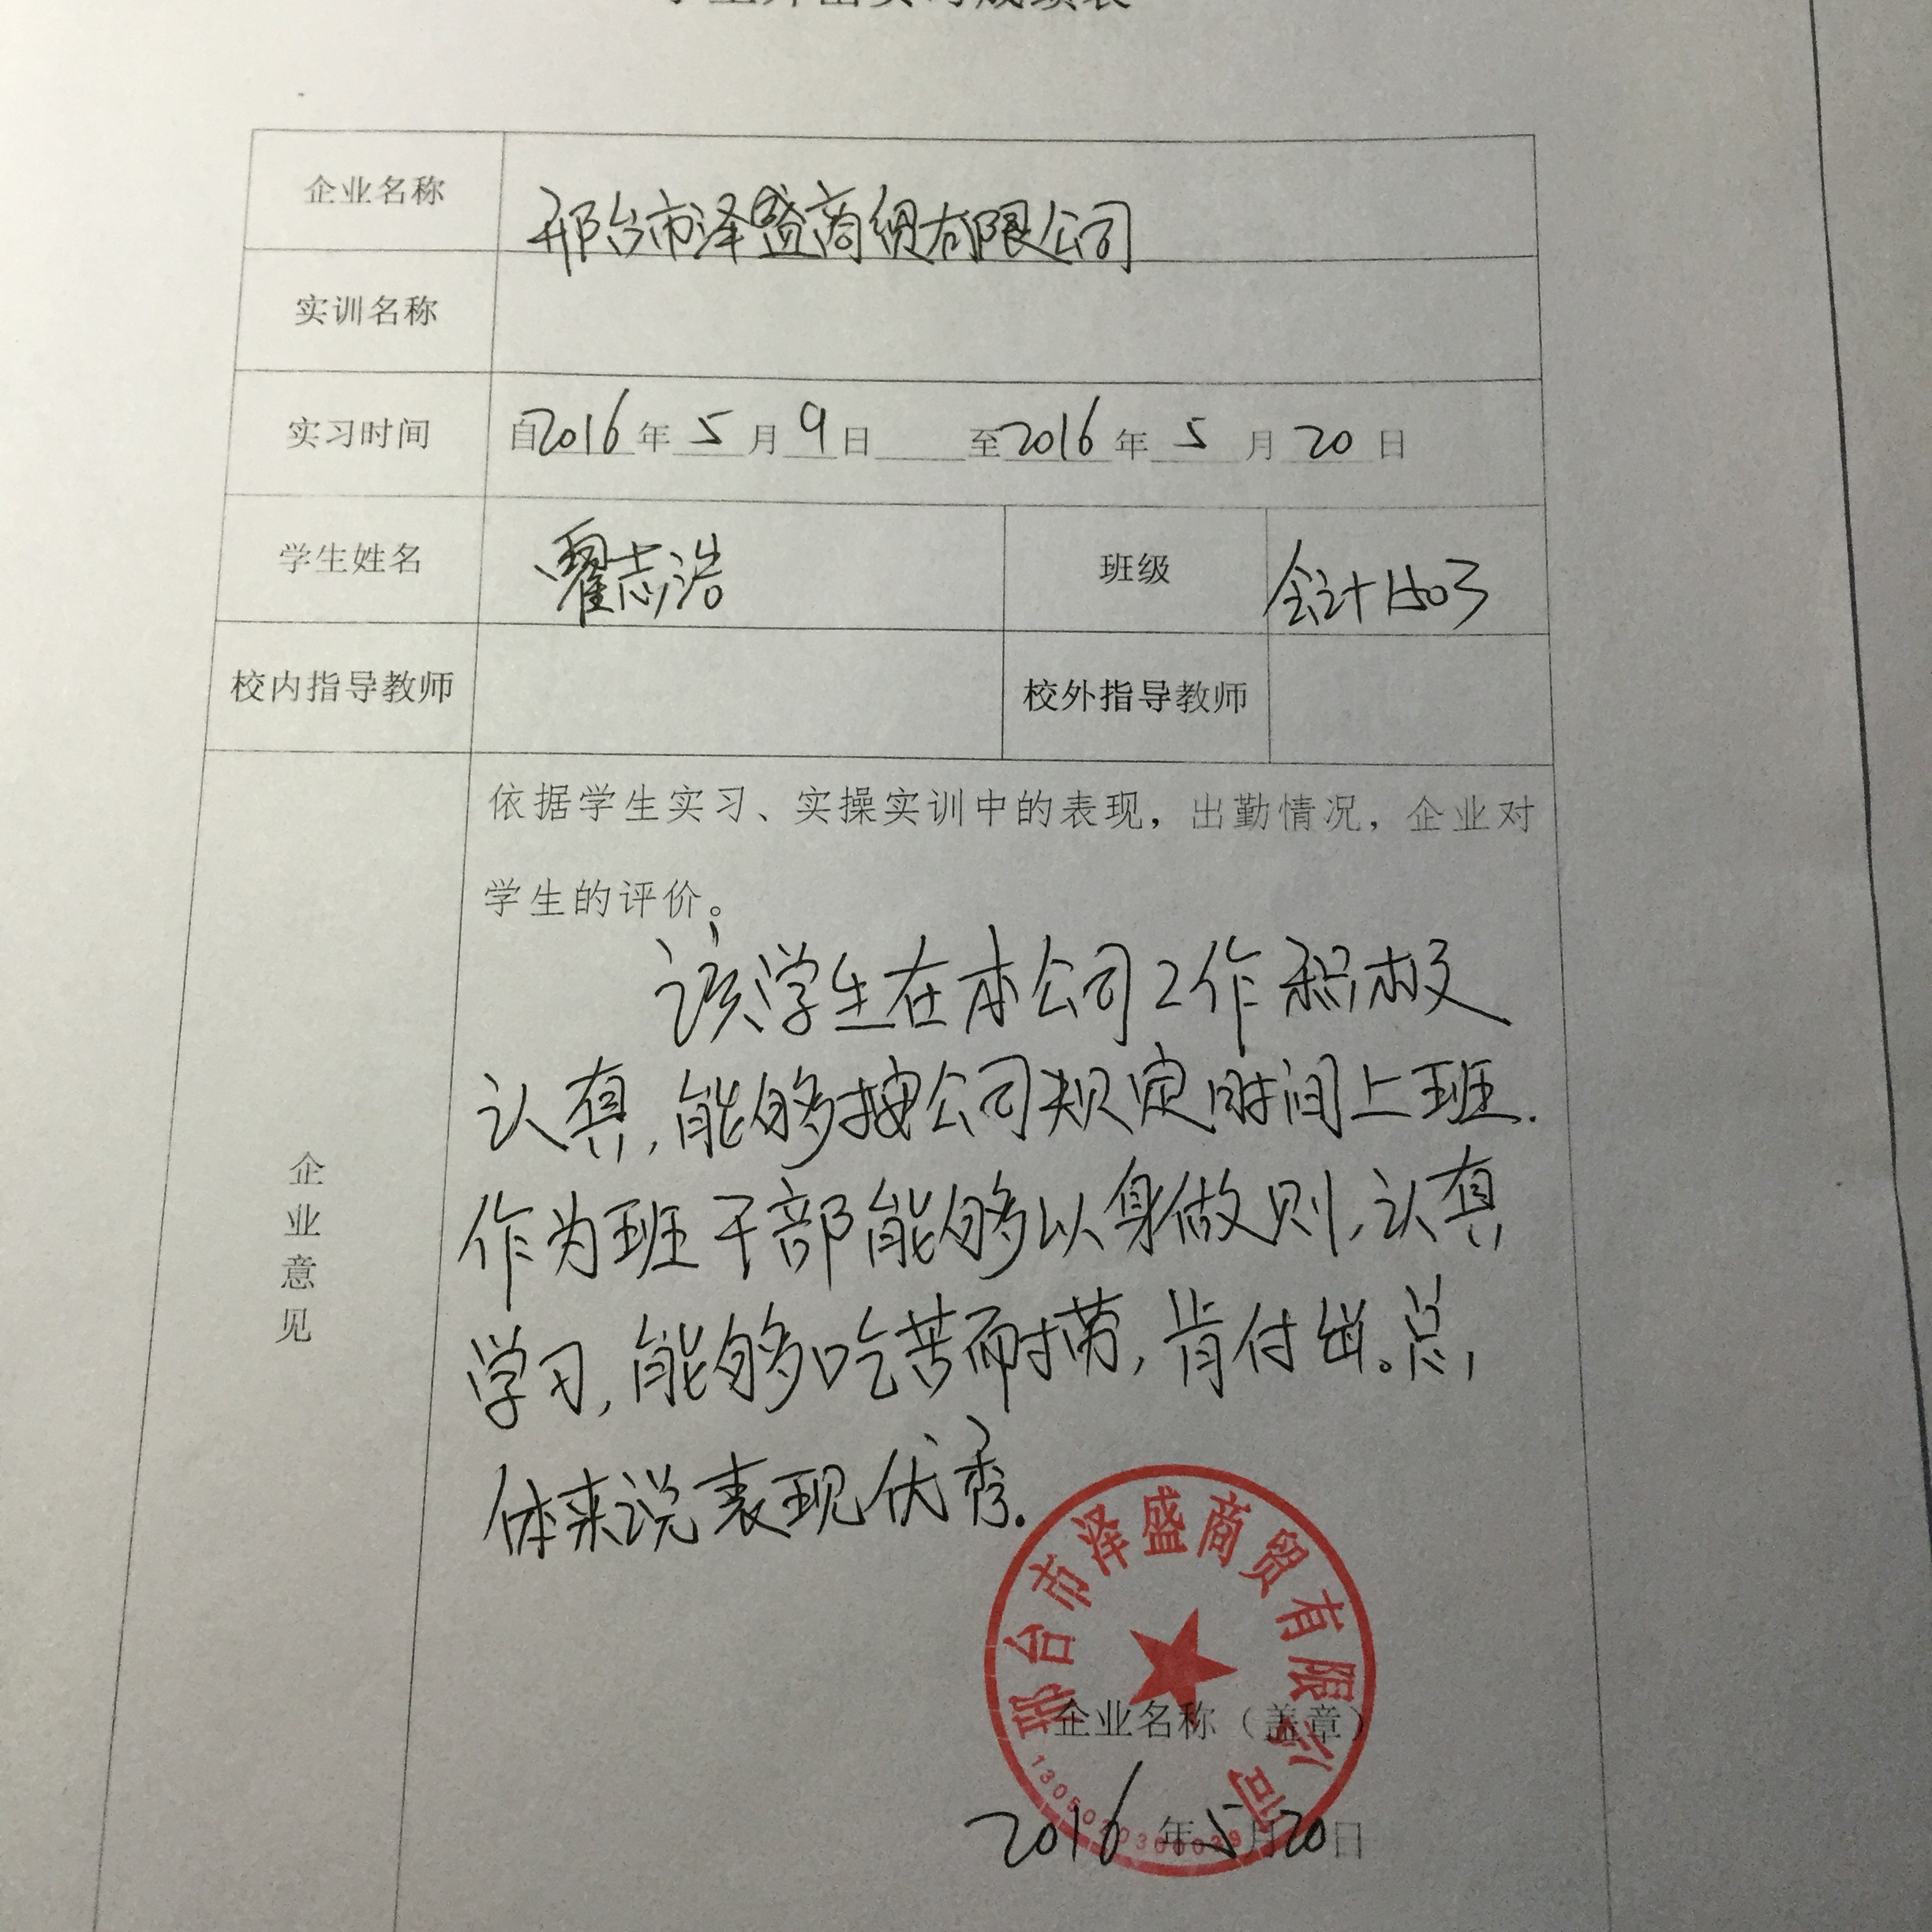 学生外出实习成绩表
企业名称 邢台市泽盛商贸有限公司
实训名称
实习时间 自2016年5月9日 至2016年5月20日
学生姓名 瞿志浩 班级 会计1503
校内指导教师 校外指导教师
依据学生实习、实操实训中的表现，出勤情况，企业对
学生的评价。
该学生在本公司工作积极
认真，能够按公司规定时间上班.
作为班干部能够以身做则，认真
学习，能够吃苦耐劳，肯付出。总
体来说表现优秀.
企业意见
邢台市泽盛商贸有限公司
企业名称（盖章）
2016年5月20日